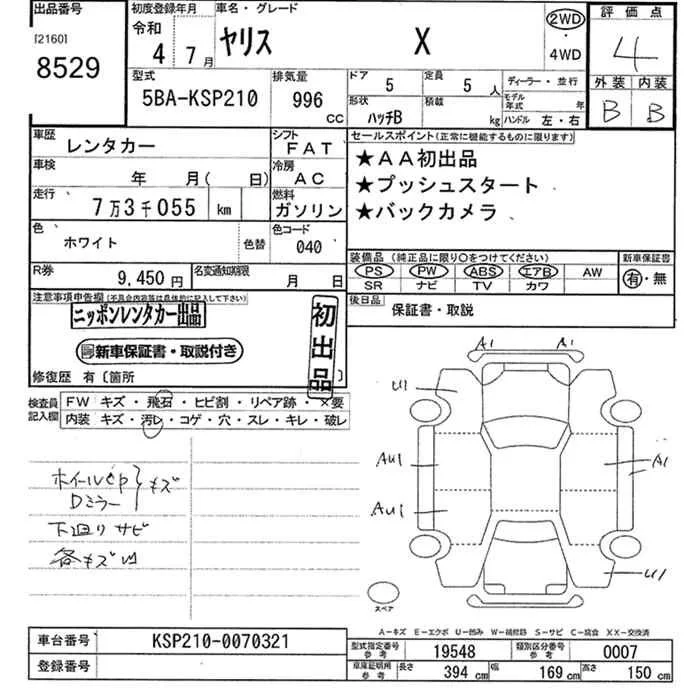 出品番号
[2160]
8529
初度登録年月
令和
4年
7月
車名・グレード
ヤリス X
2WD
・
4WD
評価点
4
外装 内装
B B
型式
5BA-KSP210
排気量
996
CC
ドア
5
定員
5人
形状
ハッチB
積載
kg
ディーラー・並行
モデル年式 年
ハンドル 左・右
車歴
レンタカー
シフト
FAT
車検
年 月( 日)
冷房
AC
走行
7万3千055 km
燃料
ガソリン
色
ホワイト
色替
色コード
040
R券
9,450円
名変通知期限
月 日
セールスポイント(正常に機能するものに限ります)
★AA初出品
★プッシュスタート
★バックカメラ
装備品(純正品に限り〇をつけてください)
新車保証書
PS PW ABS エアB AW
SR ナビ TV カワ
有・無
後日品
保証書・取説
注意事項申告欄(不具合内容等は具体的に記入して下さい)
ニッポンレンタカー出品
新車保証書・取説付き
初出品
修復歴 有〔箇所 〕
検査員記入欄
FW キズ・飛石・ヒビ割・リペア跡・×要
内装 キズ・汚レ・コゲ・穴・スレ・キレ・破レ
ホイールcp
Dミラー
キズ
下廻りサビ
各キズ凹
A1 A1
U1
AU1
A1
AU1
U1
スペア
A-キズ E-エクボ U-凹み W-補修跡 S-サビ C-腐食 XX-交換済
車台番号
KSP210-0070321
登録番号
型式指定番号
参考
19548
類別区分番号
参考
0007
車庫証明用
参考
長さ
394 cm
幅
169 cm
高さ
150 cm